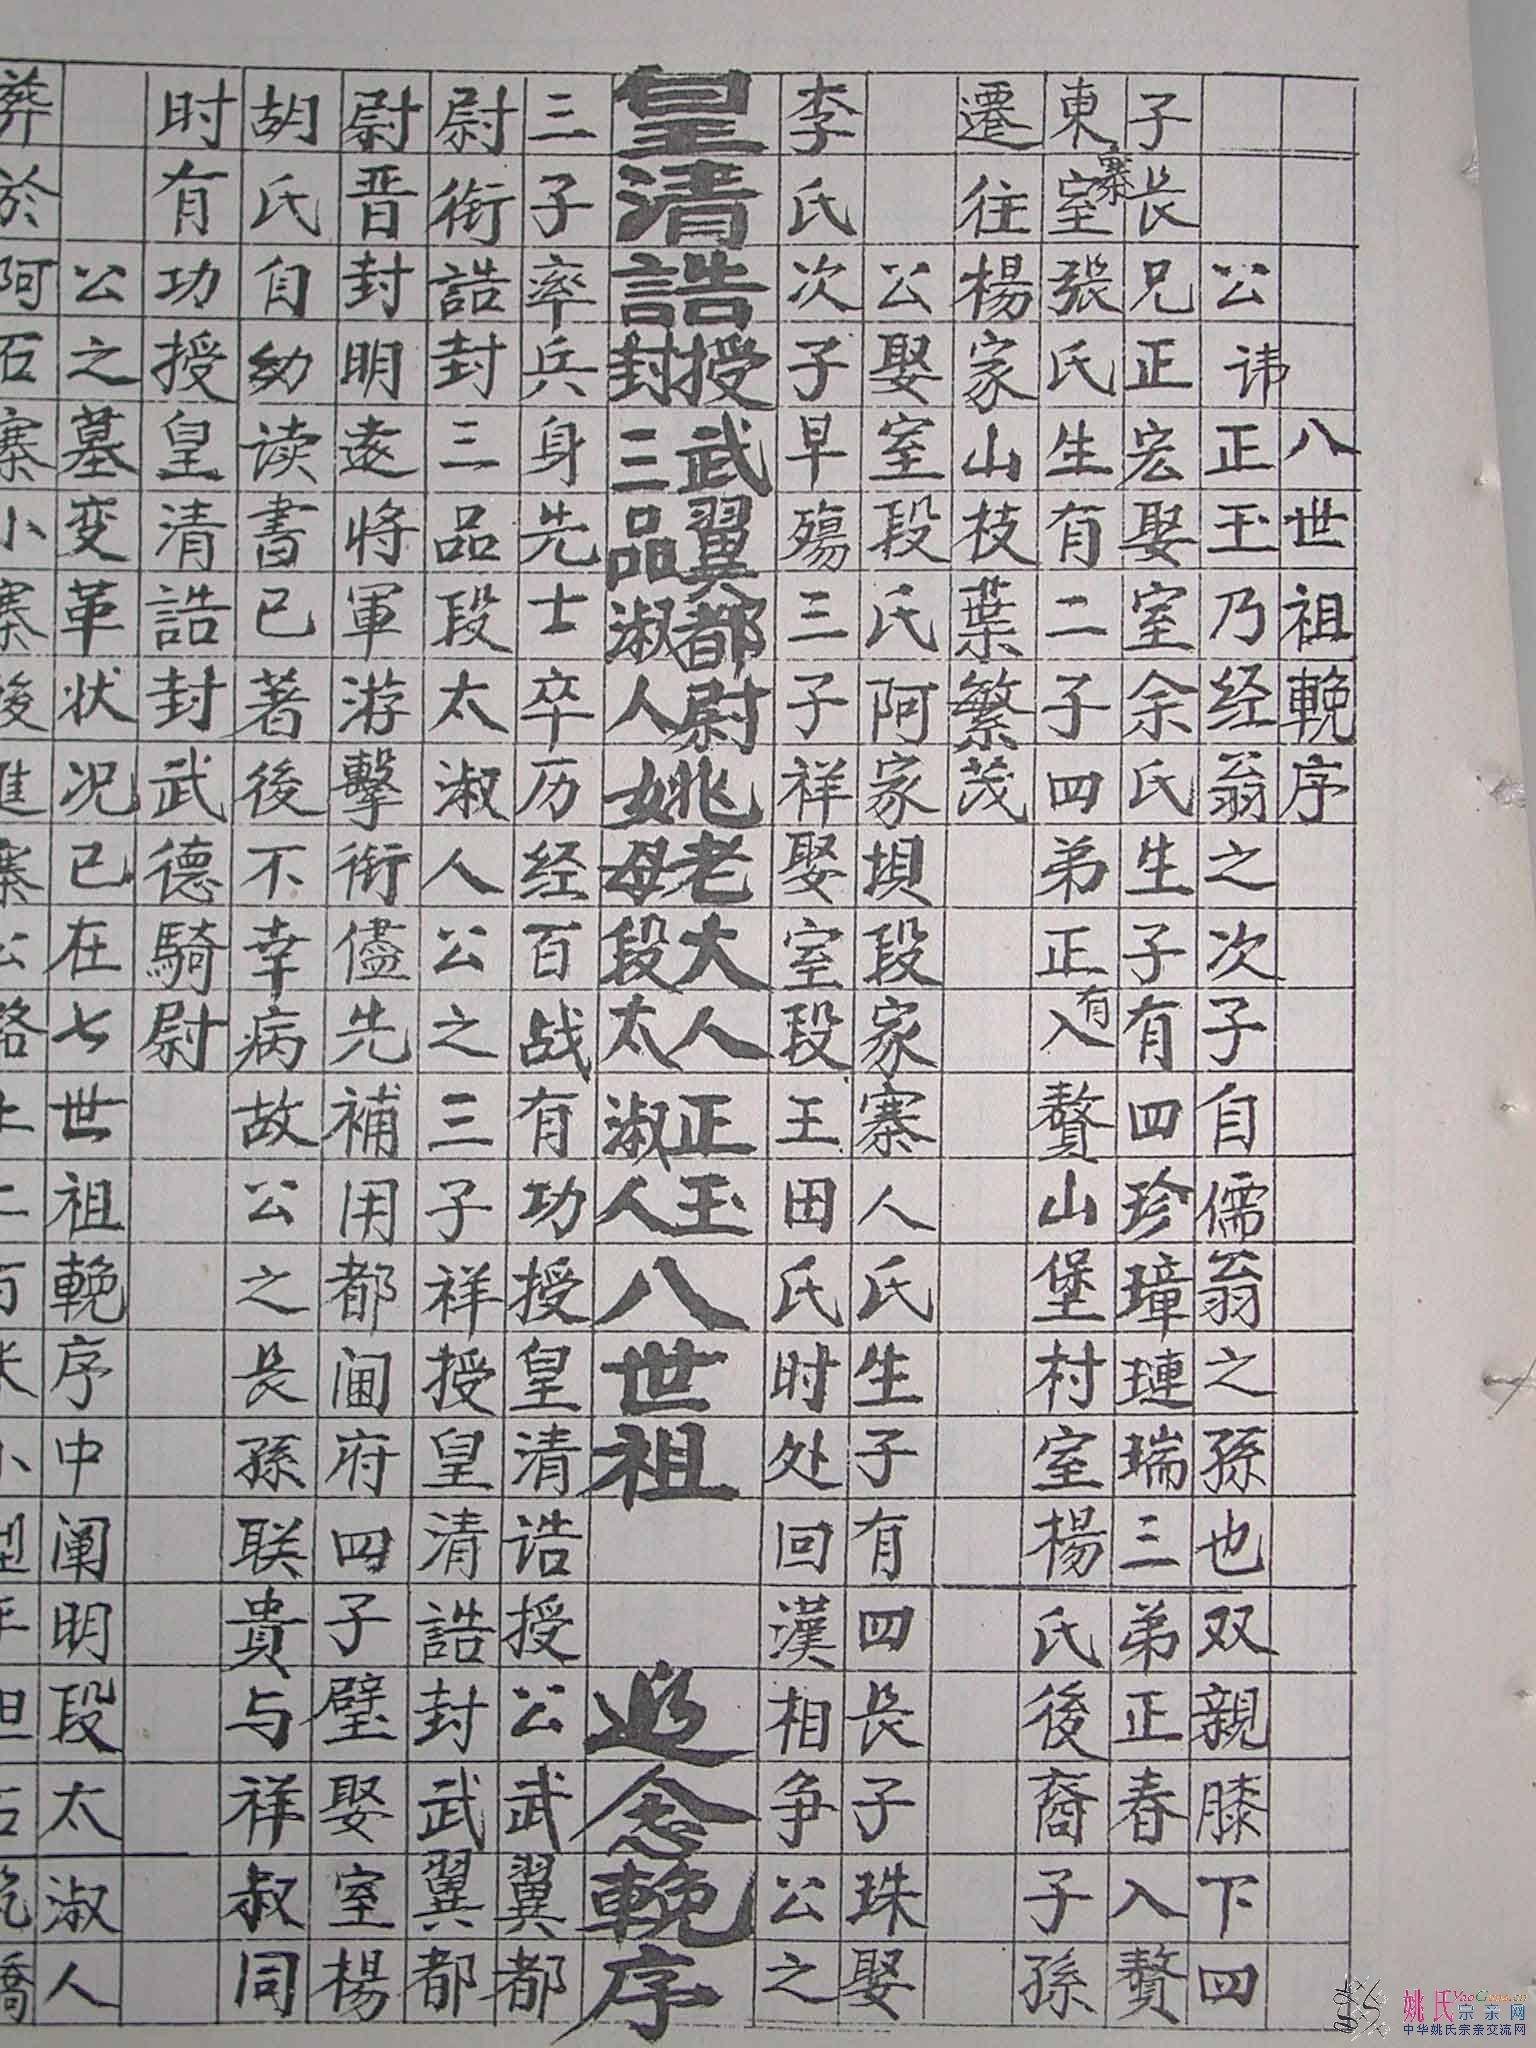 八世祖輓序
公讳正玉乃经翁之次子自儒翁之孫也双親膝下四
子長兄正宏娶室余氏生子有四珍璋璉瑞三弟正春入贅
東寨室張氏生有二子四弟正有入贅山堡村室楊氏後裔子孫
遷往楊家山枝葉繁茂
公娶室段氏阿家垻段家寨人氏生子有四長子珠娶
李氏次子早殤三子祥娶室段王田氏时处回漢相争公之
皇清誥授武翼都尉姚老大人正玉
封三品淑人姚母段太淑人八世祖 追念輓序
三子率兵身先士卒历经百战有功授皇清诰授公武翼都
尉衔誥封三品段太淑人公之三子祥授皇清誥封武翼都
尉晋封明遠将軍游擊衔儘先補用都阃府四子璧娶室楊
胡氏自幼读書已著後不幸病故公之長孫联貴与祥叔同
时有功授皇清誥封武德騎尉
公之墓变革状况已在七世祖輓序中阐明段太淑人
葬於阿石寨小寨後進寨公路上二百米小型平坦